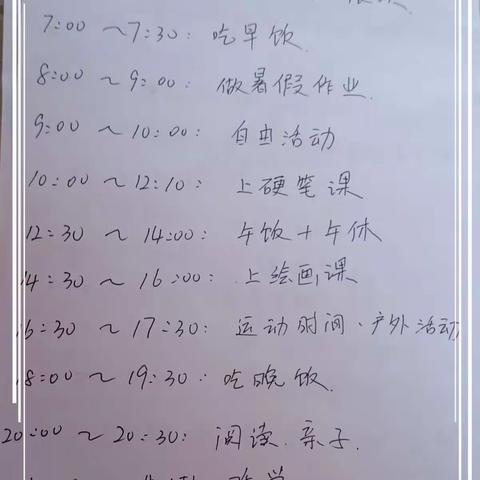 7:00 ~7:30: 吃早饭.
8:00 ~ 9:00: 做暑假作业.
9:00 ~ 10:00: 自由活动
10:00 ~ 12:10: 上硬笔课
12:30 ~ 14:00: 午饭+午休
14:30 ~ 16:00: 上绘画课
16:30 ~ 17:30: 运动时间、户外活动
18:00 ~ 19:30: 吃晚饭.
20:00 ~ 20:30: 阅读.亲子.